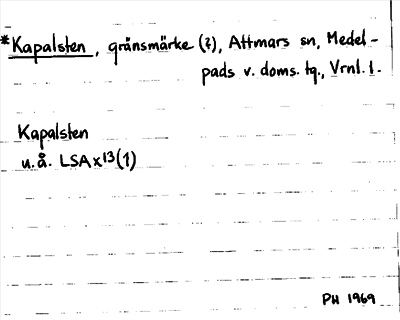 *Kapalsten, gränsmärke (?), Attmars sn, Medel-
pads v. doms. tg., Vrnl. l.
Kapalsten
u.å. LSA X13(1)
PH 1969